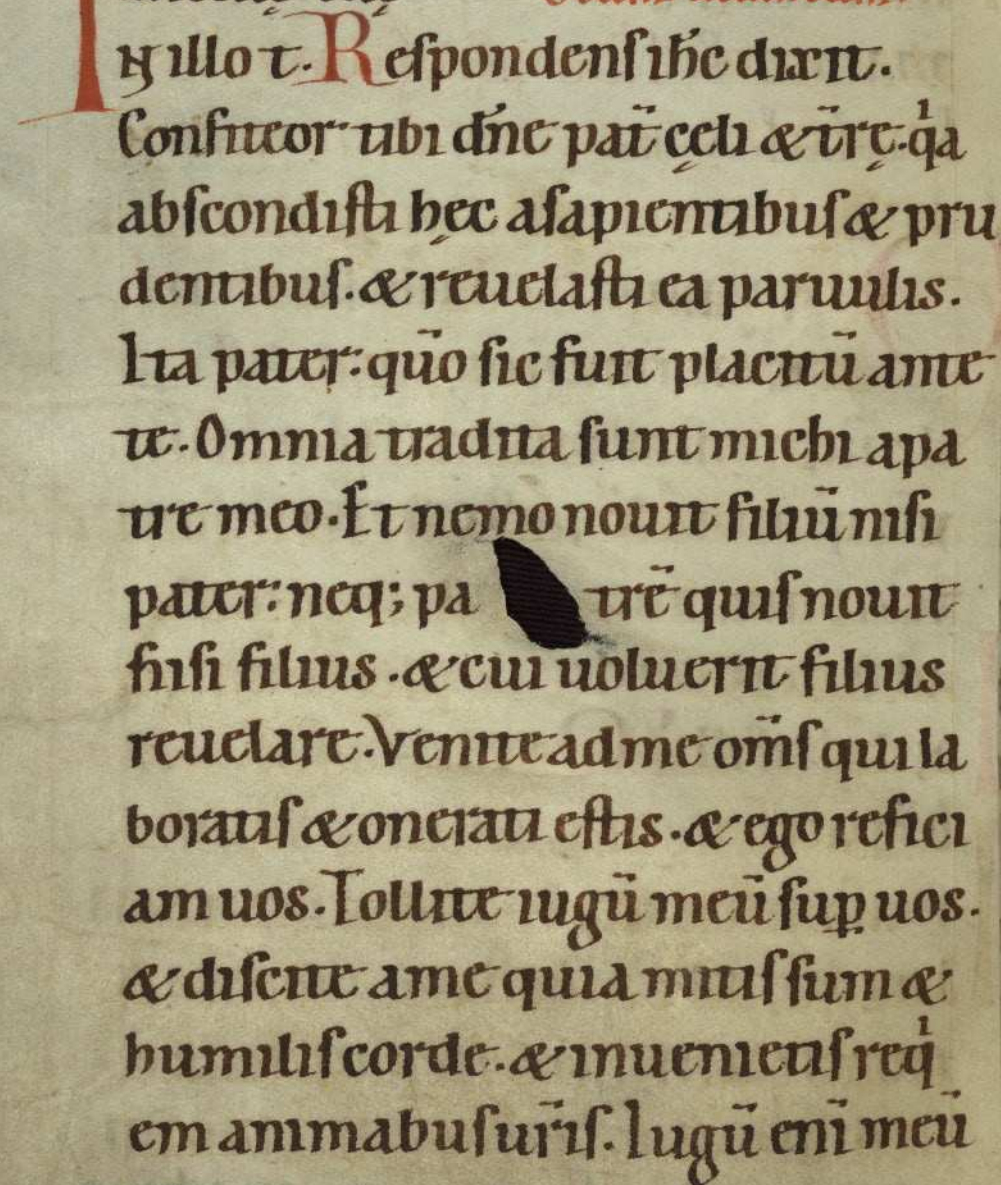 IN illo t. Respondens ih̅c dixit.
Confiteor tibi dn̅e pat̅ cęli & t̅rę. qͥa
abscondisti hęc asapientibus & pru
dentibus. & reuelasti ea paruulis.
Ita pater: quo̅ sic fuit placitu̅ ante
te. Omnia tradita sunt michi apa
tre meo. Et nemo nouit filiu̅ nisi
pater: neq; pa tre̅ quis nouit
nisi filius. & cui uoluerit filius
reuelare. Venite ad me om̅s qui la
boratis & onerati estis. & ego refici
am uos. Tollite iugu̅ meu̅ suꝑ uos.
& discite ame quia mitis sum &
humilis corde. & inuenietis reqͥ
em animabus ur̅is. Iugu̅ eni̅ meu̅